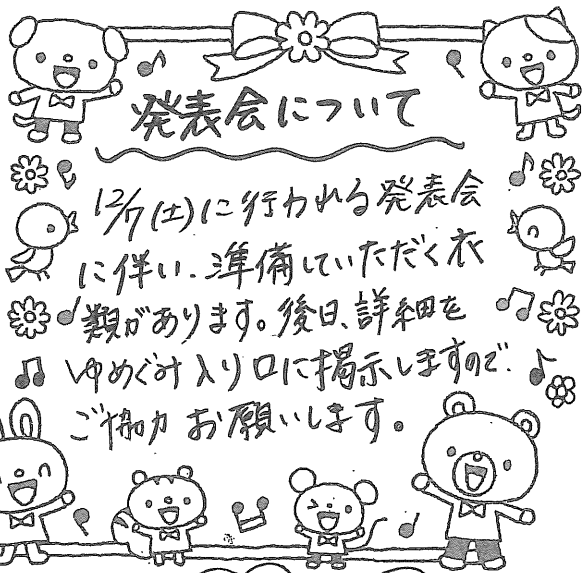 発表会について
12/7(土)に行われる発表会
に伴い、準備していただく衣
類があります。後日、詳細を
ゆめぐみ入り口に掲示しますので、
ご協力お願いします。